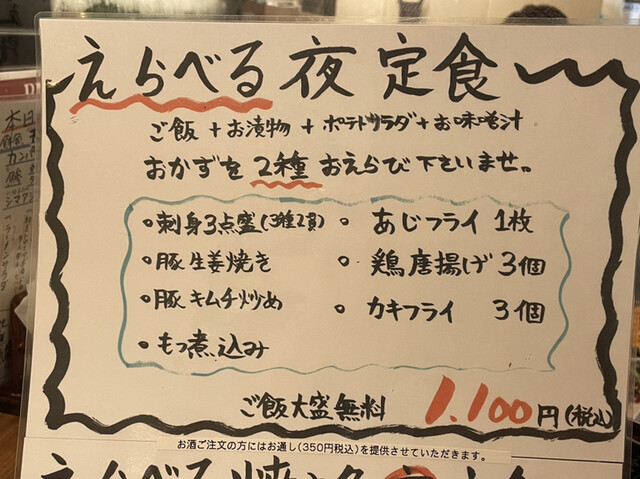 えらべる夜定食
ご飯+お漬物+ポテトサラダ+お味噌汁
おかずを2種おえらび下さいませ。
•刺身3点盛(3種2貫)
•豚生姜焼き
•豚キムチ炒め
•もつ煮込み
•あじフライ 1枚
•鶏唐揚げ 3個
•カキフライ 3個
ご飯大盛無料 1.100円(税込)
お酒ご注文の方にはお通し(350円税込)を提供させていただきます。
えらべる
本日